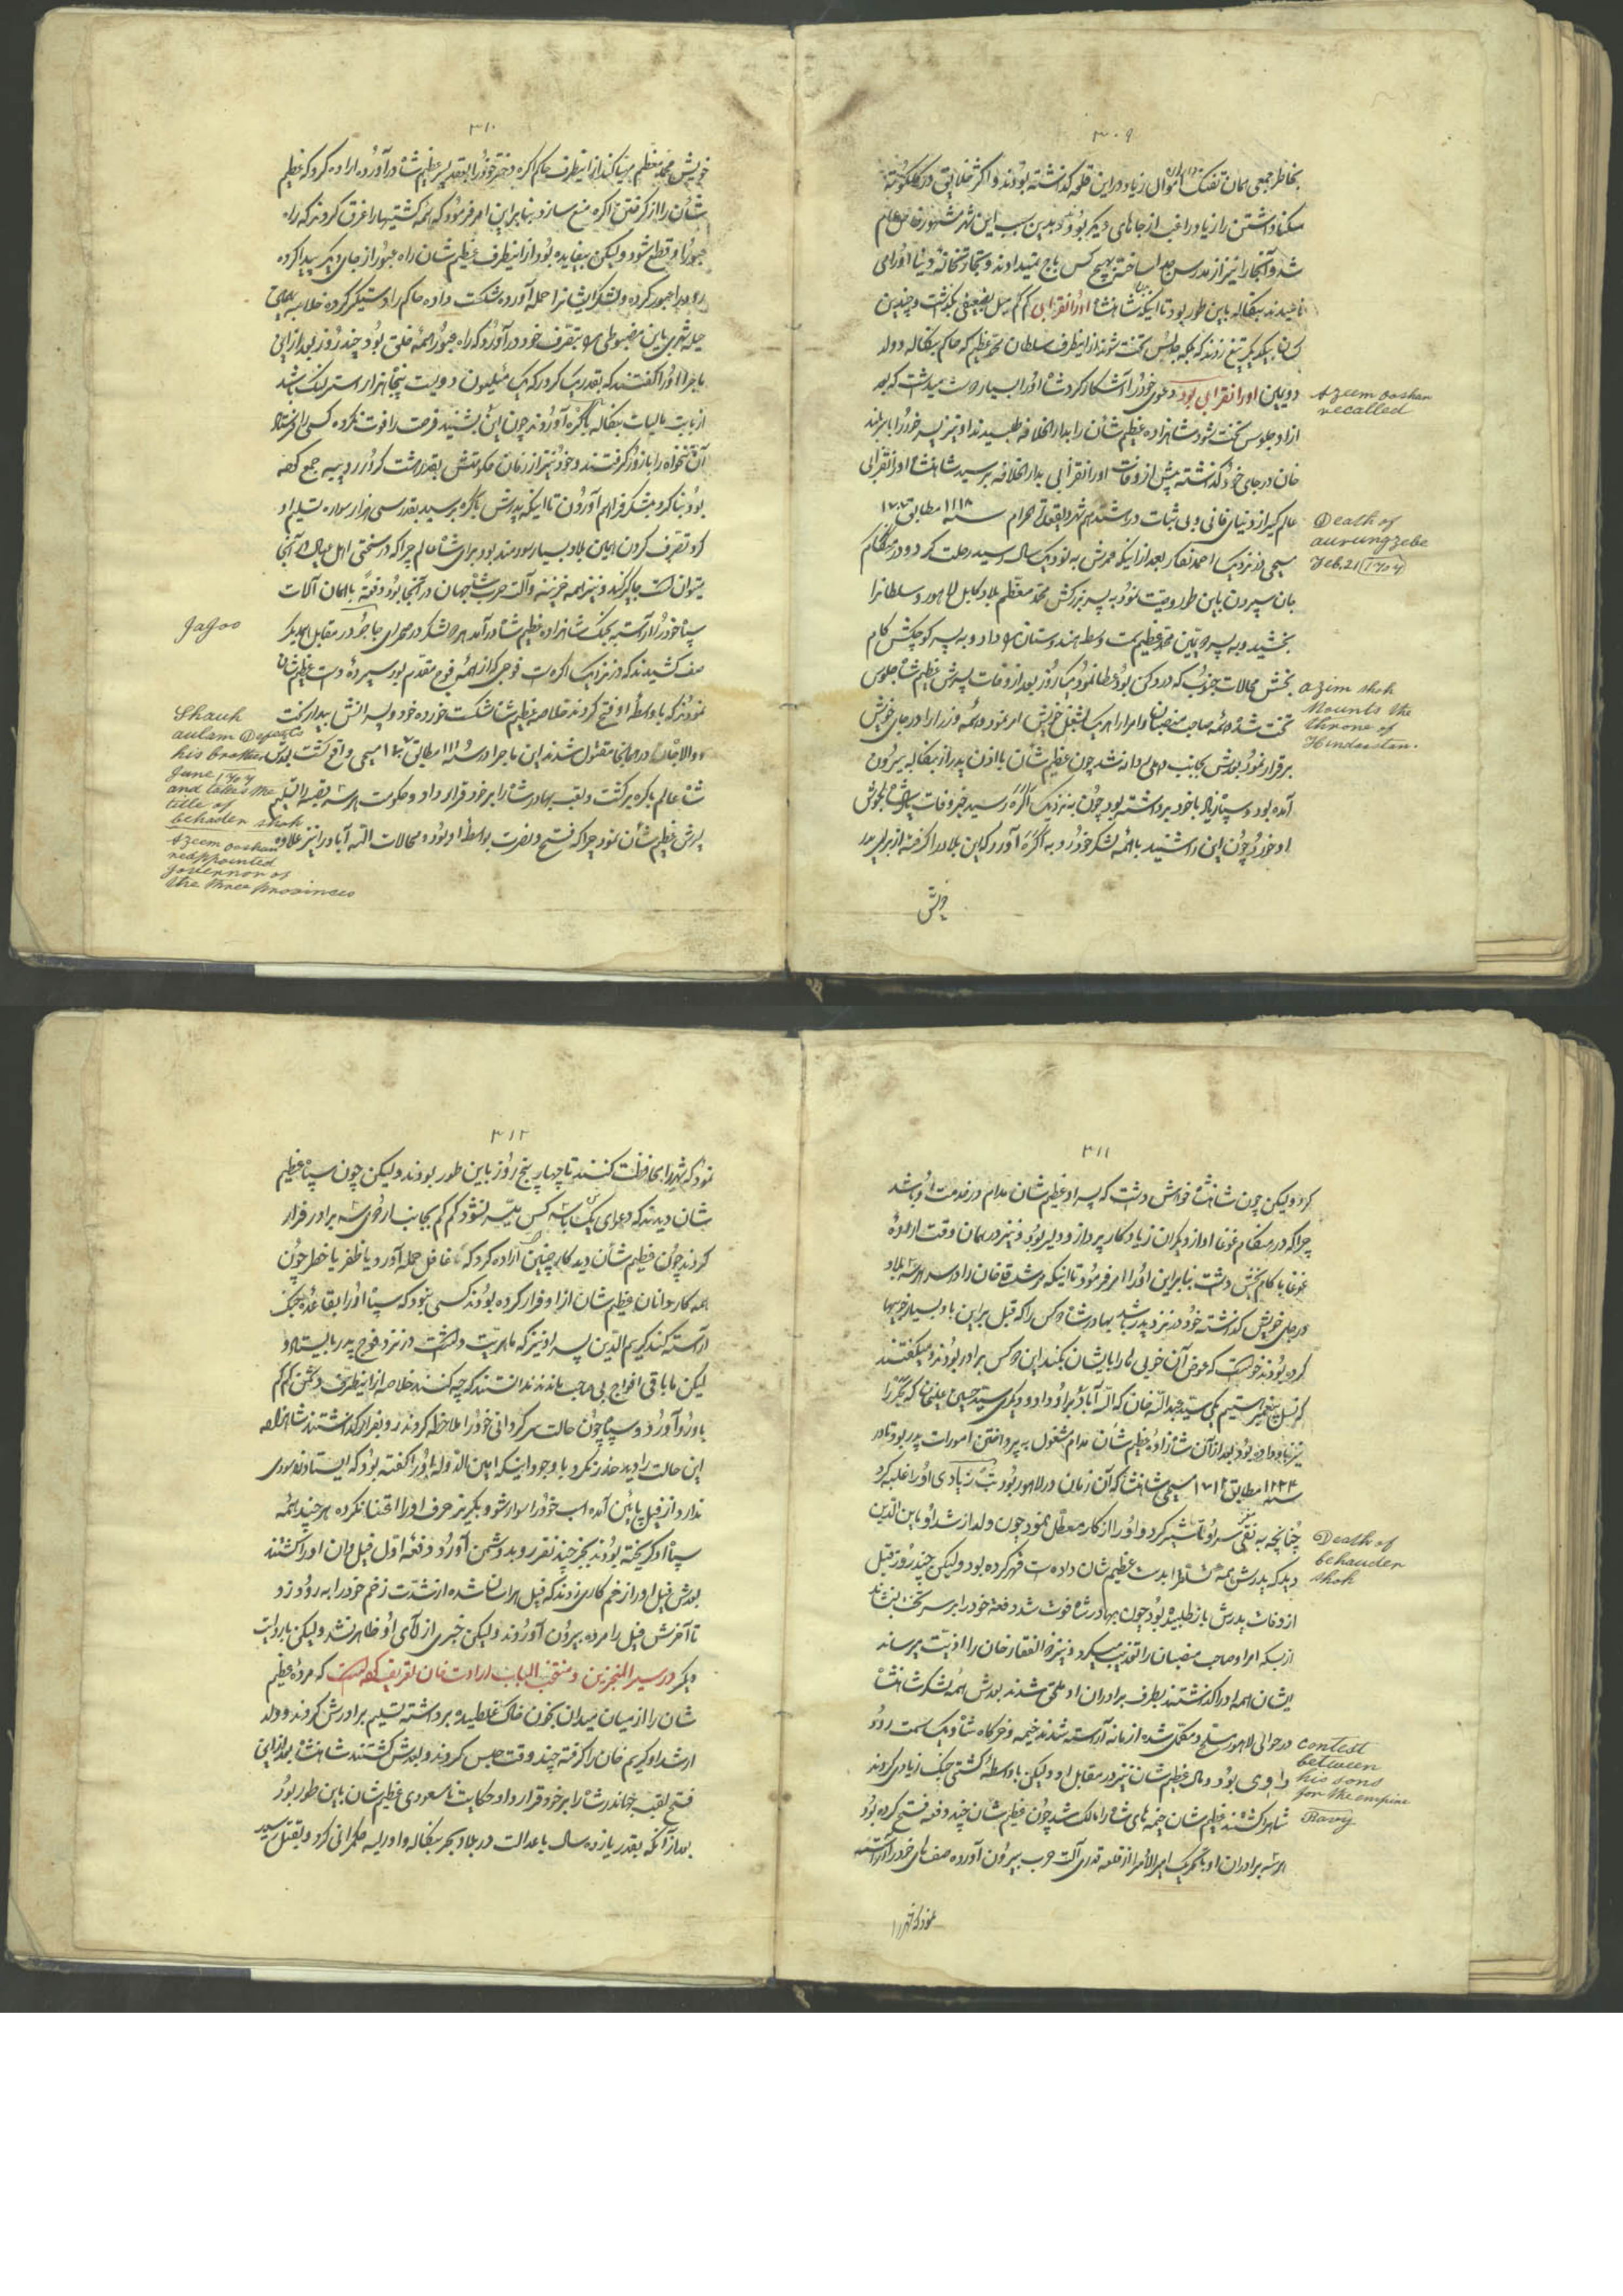 ۳۰۹
بخاطر جمعی همان تفنک اموال زیاد در این قلعه کذشته بودند و اکثر خلایق در کلکوته
سکنا داشتن را زیاد راغب از جاهای دیکر بودند و بدین سبب این شهر مشهور خاص و عام
شد و آنجا را نیز از مدرس جدا ساختند بهیچ کس باج نمیدادند و تجارتخانه دنیا او را می
نامیدند بنکاله باین طور بود تا اینکه شاهنشاه اورانقزابی کم کم میل بضعیفی کذشت و چندین
Azeem ooshan
recalled
دویمین اورانقزابی بود دعوی خود را آشکار کرد شاه او را بسیار دوست میداشت که بعد
از او جلوس تخت شود شاهزاده عظیم شان را بدار الخلافه طلبیدند او نیز پسر خود را
خان در جای خود کذشته پیش از وفات اورانقزابی بدار الخلافه برسید شاهنشاه اورانقزابی
Death of
aurungzebe
Feb. 21 1707
عالم کیر از دنیای فانی و بی ثبات در هشتم شهر ذیقعدة الحرام سنه ۱۱۱۸ مطابق ۱۷۰۷
مسیحی در نزدیک احمد نکر بعد از اینکه عمرش به نود و یک سال رسید رحلت کرد و در هنکام
جان سپردن باین طور وصیت نمود به پسر بزرکش محمد معظم بلاد کابل لاهور و سلطانرا
بخشید و به پسر دویمین محمد عظیم سمت وسط هندوستان داد و به پسر کوچکش کام
azim shah
Mounts the
throne of
Hindustan.
بخش محالات جنوب که در دکن بود عطا نمود یک روز بعد از وفات پدرش عظیم شاه جلوس
تخت شد و همه صاحب منصبان و امرا را هر یک بشغل خویش امر نمود و همه وزرا را در جای خویش
برقرار نمود بعدش بجانب دهلی روانه شد چون عظیم شان با اذن پدر از بنکاله بیرون
آمده بود و سپاه زیاد با خود برداشته بود چون به نزدیک آکره رسید خبر وفات پادشاه بکوش
او خورد چون این را شنید با همه لشکر خود رو به آکره آورد که این بلاد را کرفته از برای پدر
خویش
۳۱۰
خویش محمد معظم مهیا کند از اینطرف حاکم اکره دختر خود را بعقد پسر عظیم شاه در آورده اراده کرد که عظیم
شان را از کرفتن اکره منع سازد بنا بر این امر فرمود که همه کشتیها را غرق کردند که راه
عبور او قطع شود و لیکن بیفایده بود از اینطرف عظیم شان راه عبور از جای دیکر پیدا کرده
رود را عبور کرده و بلشکر ایشان حمله آورده شکست داده حاکم را دستکیر کرده خلاصه بهمین
حیله شهر باین مضبوطی را بتصرف خود در آورد که راه عبور همه خلق بود چند روز بعد از این
ماجرا او را کفتند که بقدر یک کرور که یک میلیون دویست پنجاه هزار استرلنک باشد
از بابت مالیات بنکاله باکره آوردند چون این را بشنید فرصت را فوت نکرده کسی را فرستاد
آن تنخواه را بازور کرفتند و خود نیز از زمان حکومتش بقدر هشت کرور روپیه جمع کرده
بود بنا کرد بلشکر فراهم آوردن تا اینکه پدرش باکره برسید بقدر سی هزار سواره تسلیم او
کرد تصرف کردن این بلاد بسیار سودمند بود برای شاه عالم چرا که در سختی اهل و عیال در آنجا
میتوانست جایکیر کند و نیز همه خزینه و آلت حرب شاه جهان در آنجا بود دفعةً با همان آلات
Jajoo
سپاه خود را آراسته بجنک شاهزاده عظیم شاه در آمد هر دو لشکر در صحرای جاجو در مقابل یکدیکر
صف کشیدند که در نزدیک اکره است فوجی که از همه فوج مقدم بود سپرده دست عظیم شان
نمودند که با واسطهٔ او فتح کردند خلاصه عظیم شاه شکست خورده خود و پسرانش بیدار بخت
Shauh
aulam Defeats
his brother
June 1707
and takes the
title of
behader shah
و والا جاه در همانجا مقتول شدند این ماجرا در سنه ۱۱۱۹ مطابق ۱۷۰۷ مسیحی واقع کشت بعدش
شاه عالم باکره برکشت و لقب بهادر شاه را بر خود قرار داد و حکومت هر سه بقعه را تسلیم
Azeem ooshan
reappointed
governor of
the three provinces
پسرش عظیم شان نمود چرا که فتح و نصرت بواسطه او بود و محالات الله آباد را نیز علاوه
۳۱۱
کرد و لیکن چون شاهنشاه خواهش داشت که پسر او عظیم شان مدام در خدمت او باشد
چرا که در هنکام غوغا او از دیکران زیاد کار پرداز و دلیر بود و نیز در همان وقت اراده
غوغا با کام بخش داشت بنا براین او را امر فرمود تا اینکه مرشد قلی خان را در سر هر سه بلاد
در جای خویش کذشته خود در نزد پدر باشد بهادر شاه دو کس را که قبل بر این با او بسیار خوبیها
کرده بودند خواست که عوض آن خوبی ها را با ایشان بکند این دو کس برادر بودند و میکفتند
که از نسل پیغمبر هستیم یکی سید عبدالله خان که اله آباد را بر او داد و دیکری سید حسین علیخان که
نیز باو داده بود بعد از آن شاهزاده عظیم شان مدام مشغول به پرداختن امورات پدر بود تا در
سنه ۱۱۲۴ مطابق ۱۷۱۲ مسیحی شاهنشاه که آن زمان در لاهور بود تب زیادی او را غلبه کرد
Death of
behauder
shah
چنانچه به نقی سر او تاثیر کرد و او را از کار معطل نمود چون ولد ارشد او معز الدین
دید که پدرش همه را بدست عظیم شان داده است قهر کرده بود و لیکن چند روز قبل
از وفات پدرش باز طلبیده بود چون بهادر شاه فوت شد دفعة خود را بر سر تخت نشاند
از بسکه امرا و صاحب منصبان را تعذیب میکرد و نیز ذو الفقار خان را اذیت میرساند
ایشان همه او را کذاشتند بطرف برادران او ملحق شدند بعدش همه لشکر شاهنشاه
contest
between
his sons
for the empire
در حوالی لاهور مسلح و مکمل شده از مانه آراسته شدند خیمه و خرکاه شاه و یک سمت رود
Ravy
راوی بود و مال عظیم شان نیز در مقابل او و لیکن با واسطه کشتی جنک زیادی کردند
شاه را کشتند عظیم شان خیمه های شاه را مالک شد چون عظیم شان چند دفعه فتح کرده بود
هر سه برادران او با تحریک امیر الامرا از قلعه قدری آلت حرب بیرون آورده صف های خود را آراسته
نمود که شهر را
۳۱۲
نمود که شهر را محافظت کنند تا چهار پنج روز باین طور بودند و لیکن چون سپاه عظیم
شان دیدند که دعوای یک با سه کس میسر نشود کم کم بجانب اردوی سه برادر فرار
کردند چون عظیم شان دید کار چنین است اراده کرد که غافل حمله آورد یا ظفر یا خطر چون
همه کار دانان عظیم شان از او فرار کرده بودند کسی نبود که سپاه او را بقاعده جنک
آراسته کند کریم الدین پسر او نیز که ماموریت داشت در نزد فوج پدر بایستاد و
لیکن ما باقی افواج بی صاحب ماندند ندانستند که چه کنند خلاصه از اینطرف دشمن کم کم
باو رو آورد و سپاه چون حالت سرکردانی خود را ملاحظه کردند رو بفرار کذشتند شاهزاده
این حالت را دید حذر نکرد با وجود اینکه امین الدوله او را کفته بود که ایستادن سودی
ندارد از فیل پائین آمده اسب خود را سوار شو و بکریز حرف او را اعتنا نکرده هر چند همه
سپاه او کریخته بودند بجز چند نفر رو بدشمن آورد دفعه اول فیل وان او را کشتند
بعدش فیل او را زخم کاری زدند که فیل هراسان شده از شدت زخم خود را به رود زد
تا آخرش فیل را مرده بیرون آوردند و لیکن خبری از آقای او ظاهر نشد و لیکن بروایت
دیکر در سیر المتاخرین و منتخب الباب ارادت خان تعریف کرده است که مرده عظیم
شان را از میان میدان بخون خاک غلطیده برداشته تسلیم برادرش کردند و ولد
ارشد او کریم خان را کرفته چند وقت حبس کردند و بعدش کشتند شاهنشاه بعد از این
فتح لقب جهاندر شاه را بر خود قرار داد حکایت ناسعودی عظیم شان باین طور بود
بعد از آنکه بقدر یازده سال با عدالت در بلاد بحر بنکاله و اوریسه حکمرانی کرد و بقتل رسید